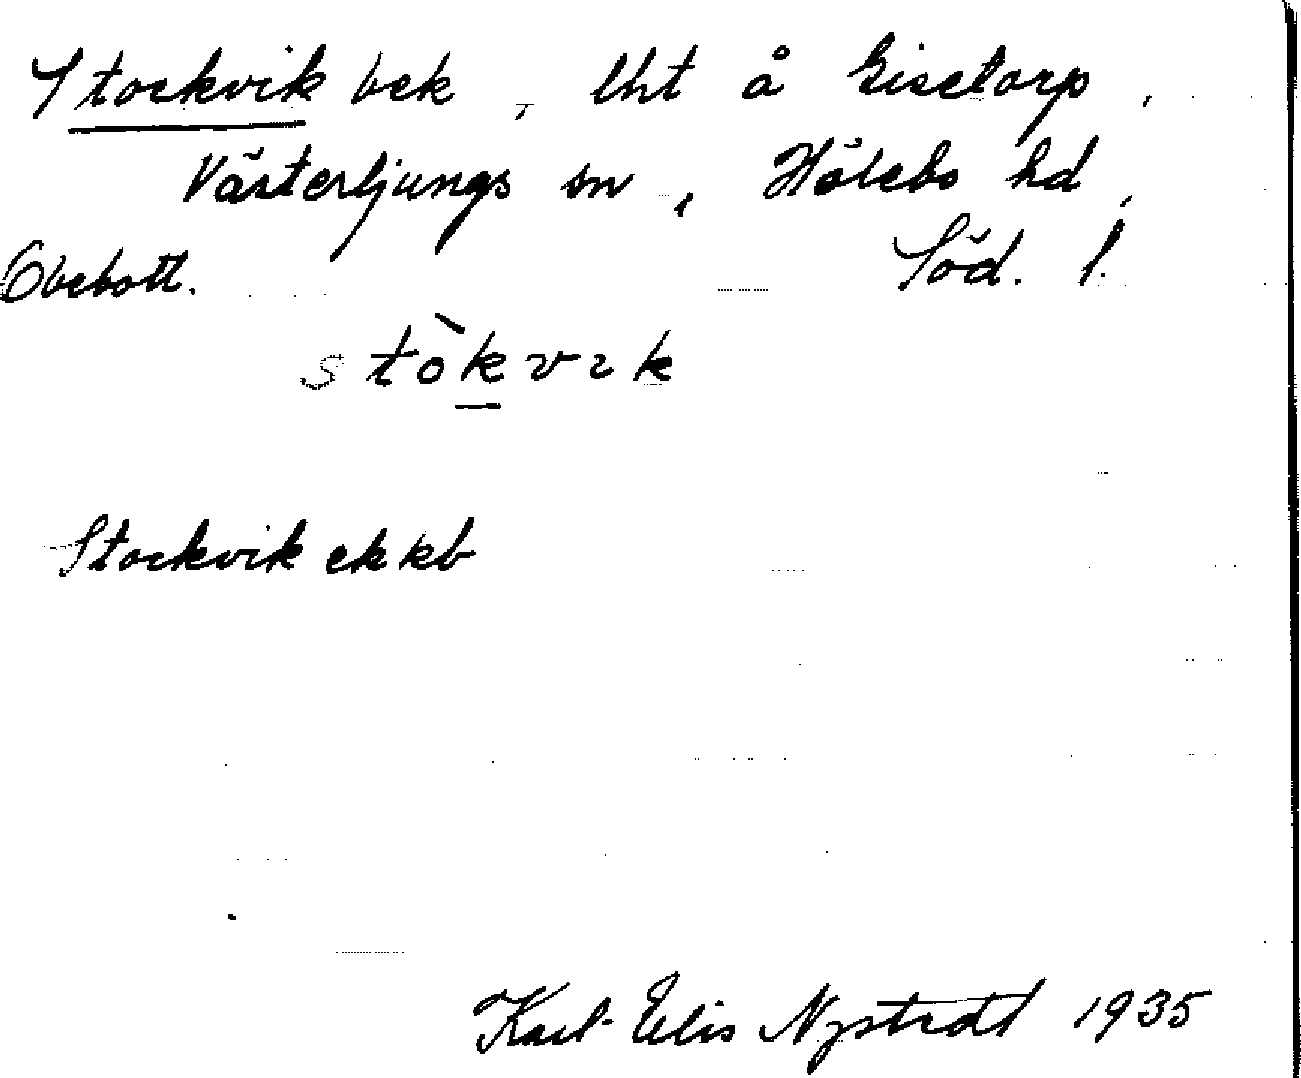 Stockvik bek, lht å Eisetorp,
Västerljungs sn, Hölebo hd,
Obebott. Söd. l.
stòkvik
Stockvik ekkb
Karl-Elis Nystedt 1935